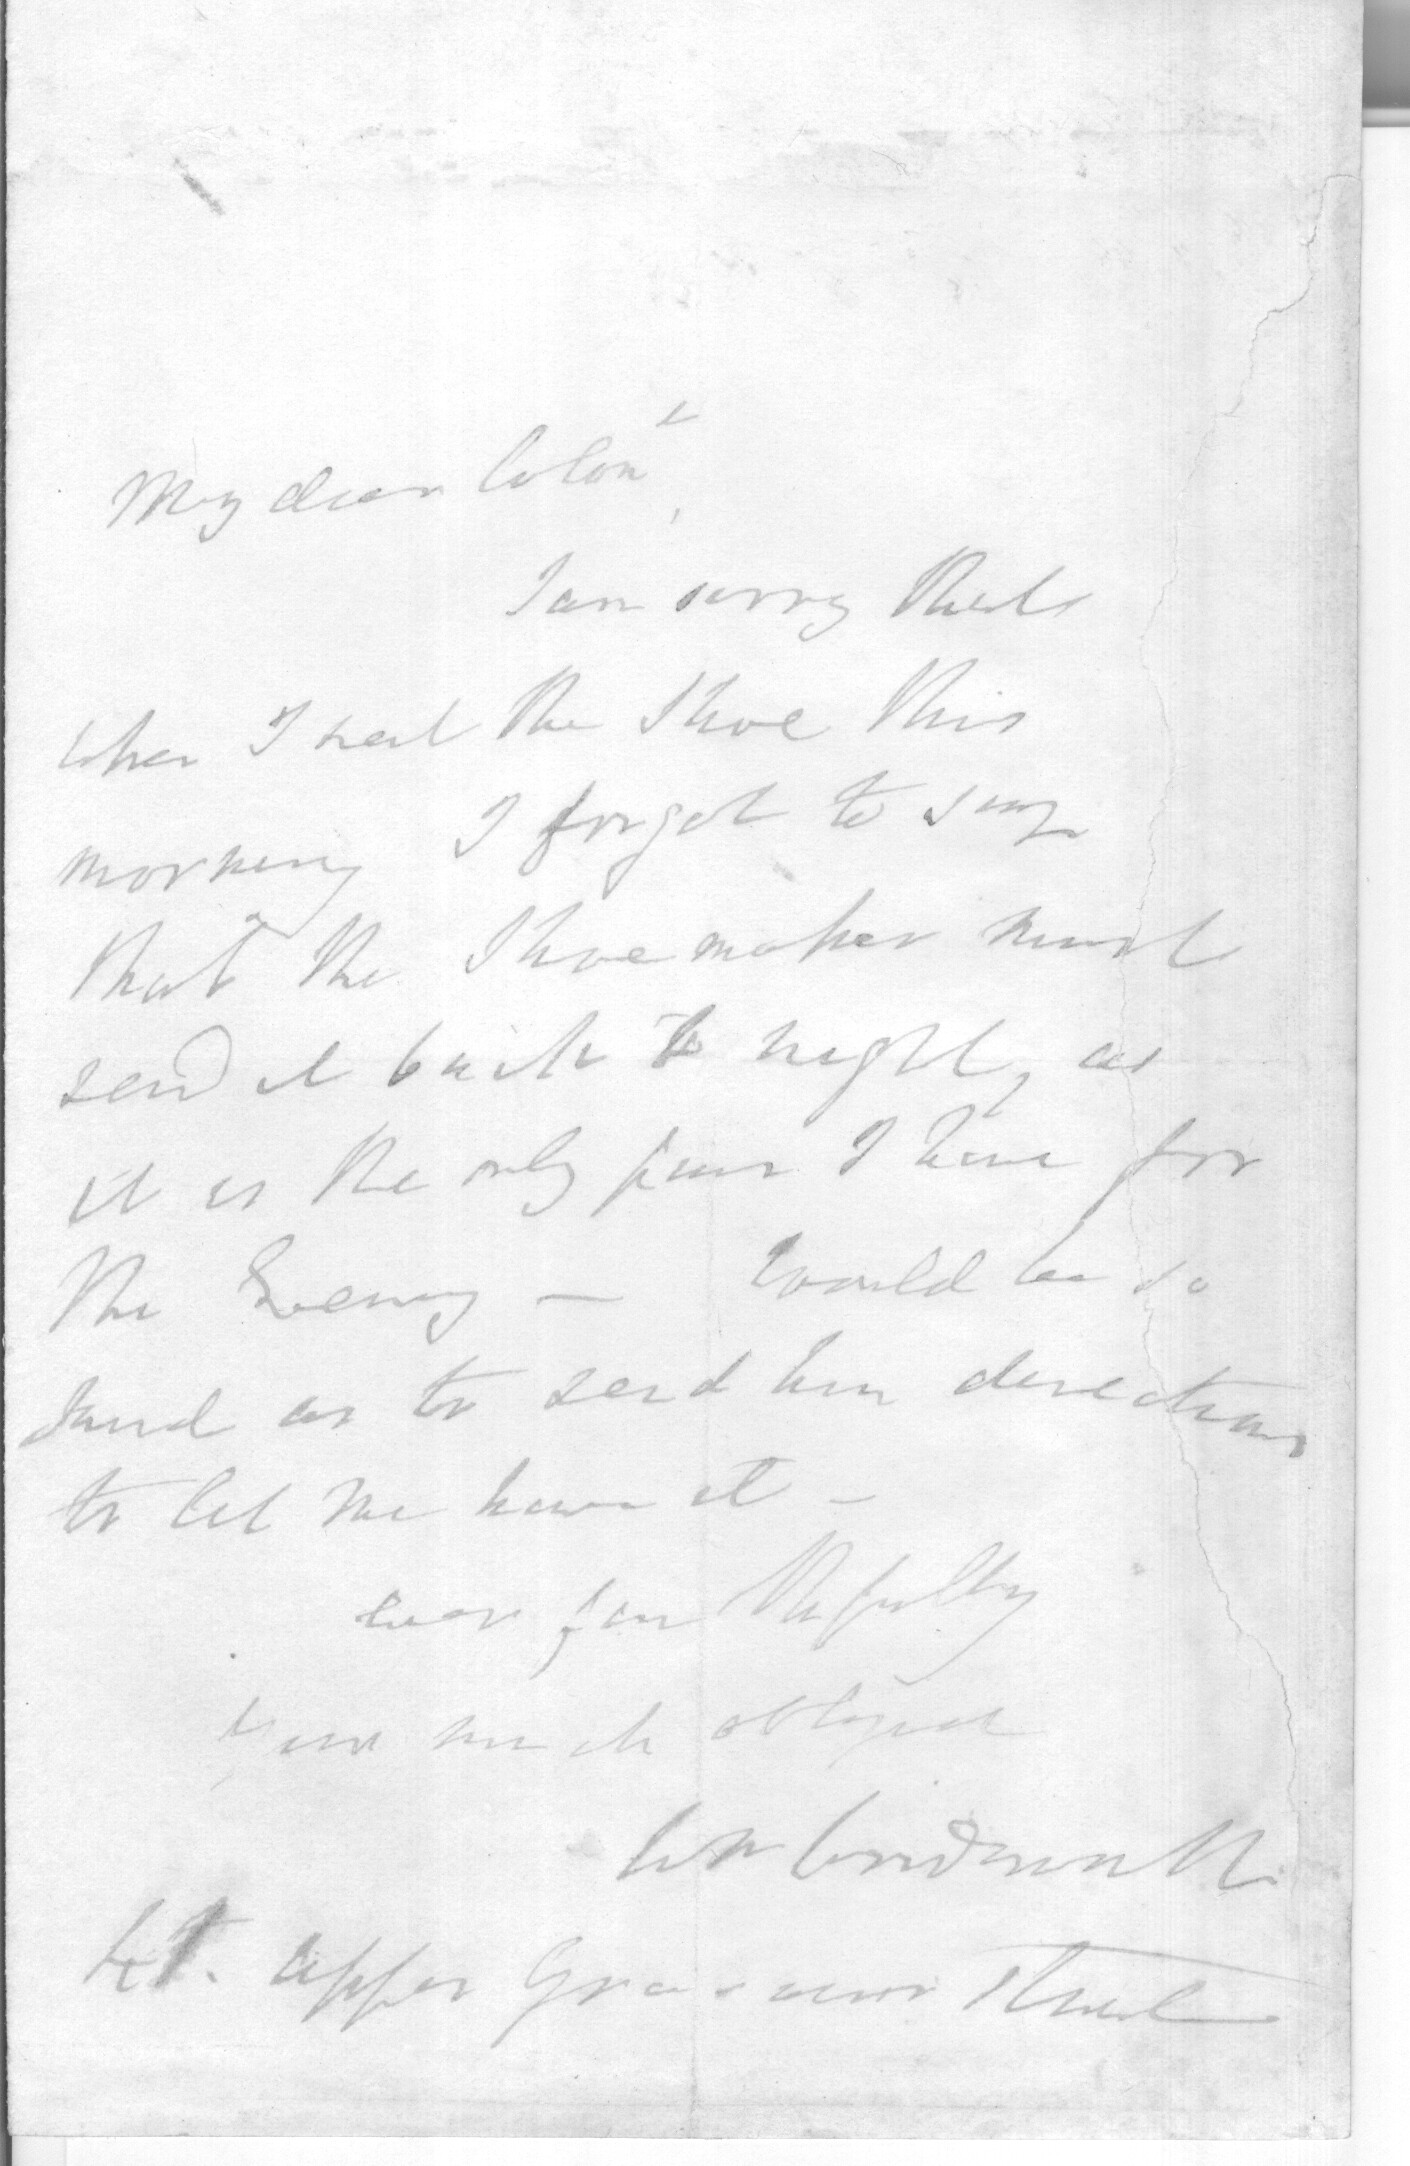 My dear Colon^l,
I am sorry that
when I sent the Shoe this
morning I forgot to say
that the Shoemaker must
send it back to night, as
it is the only pair I have for
the Evening — Would be so
kind as to send him directions
to let me have it —
ever faithfully
your much obliged
Wm Wordsworth.
Upper Grosvenor Street